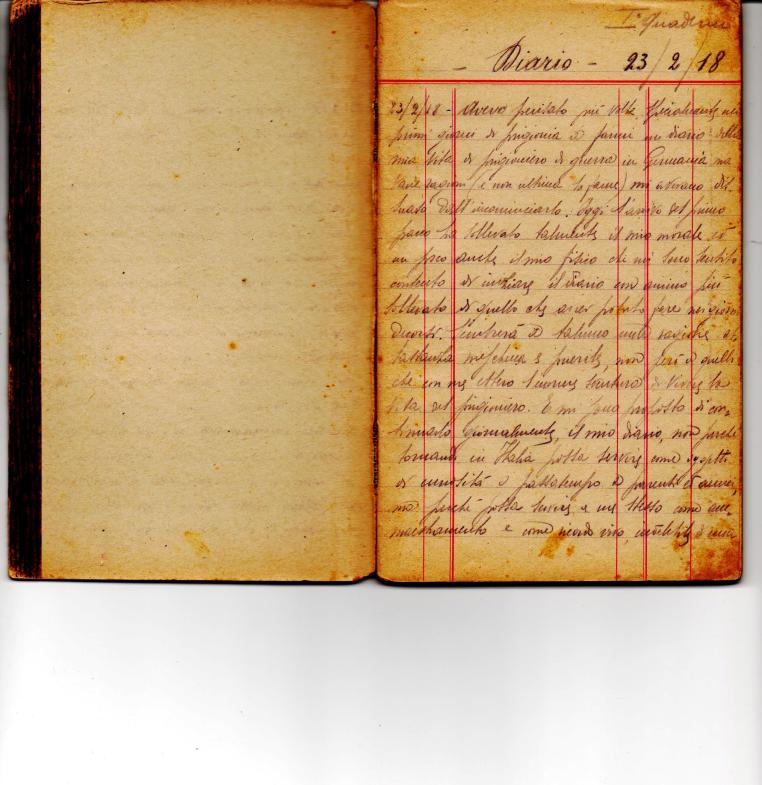 I° Quaderno
- Diario - 23/2/18
23/2/18 - Avevo pensato più volte specialmente nei
primi giorni di prigionia a farmi un diario della
mia vita di prigioniero di guerra in Germania ma
varie ragioni (e non ultima la fame) mi avevano dis-
suaso dall'incominciarlo. Oggi l'arrivo del primo
pacco ha sollevato talmente il mio morale ed
un poco anche il mio fisico che mi sono sentito
contento di iniziare il diario con animo più
sollevato di quello che avrei potuto fare nei giorni
decorsi. Sembrerà a taluno una ragione ab-
bastanza meschina e puerile, non però a quelli
che con me ebbero sventura di vivere la
vita del prigioniero. E mi sono proposto di con-
tinuarlo giornalmente, il mio diario, non perché
tornando in Italia possa servire come oggetto
di curiosità o passatempo a parenti ed amici,
ma perché possa servire a me stesso come am-
maestramento e come ricordo vivo, indelebile